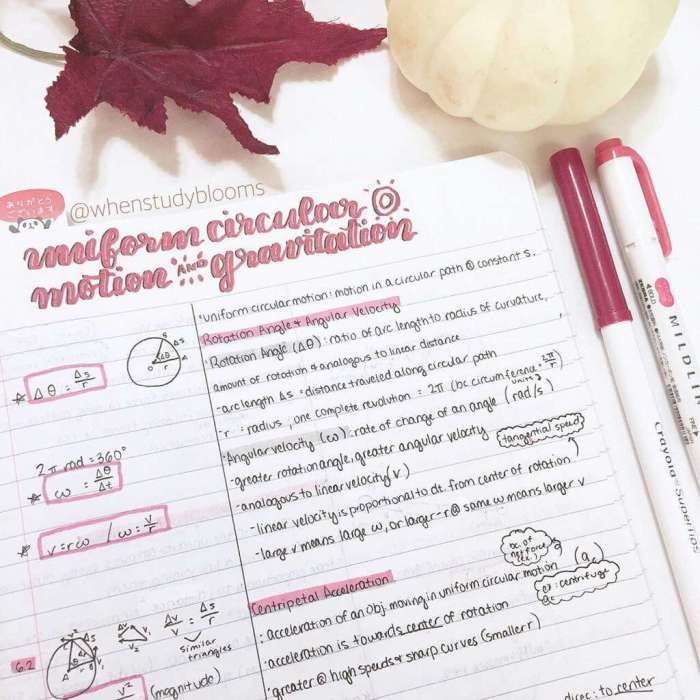 ありがとう
ございます
@whenstudyblooms
uniform circular
motion AND gravitation
·uniform circular motion: motion in a circular path @ constant s.
Rotation Angle & Angular Velocity
Rotation Angle (Δθ): ratio of arc length to radius of curvature,
amount of rotation & analogous to linear distance
-arc length Δs = distance traveled along circular path
-r = radius, one complete revolution = 2π (bc circumference = 2π/r)
·Angular velocity (ω): rate of change of an angle (rad/s)
units
-greater rotation angle, greater angular velocity
tangential speed
-analogous to linear velocity (v)
-linear velocity is proportional to dt. from center of rotation
-large v means large ω, or larger-r @ same ω means larger v
Δθ = Δs/r
2π rad = 360°
ω = Δθ/Δt
v = rω / ω = v/r
Centripetal Acceleration
: acceleration of an obj moving in uniform circular motion (ac)
bc of
net force
ex: centrifuge
-acceleration is towards center of rotation
-greater @ high speeds & sharp curves (smaller r)
direc: to center
6.2
Δv/v = Δs/r
similar
triangles
v²
(magnitude)
MILDLIN
Crayola Supertips